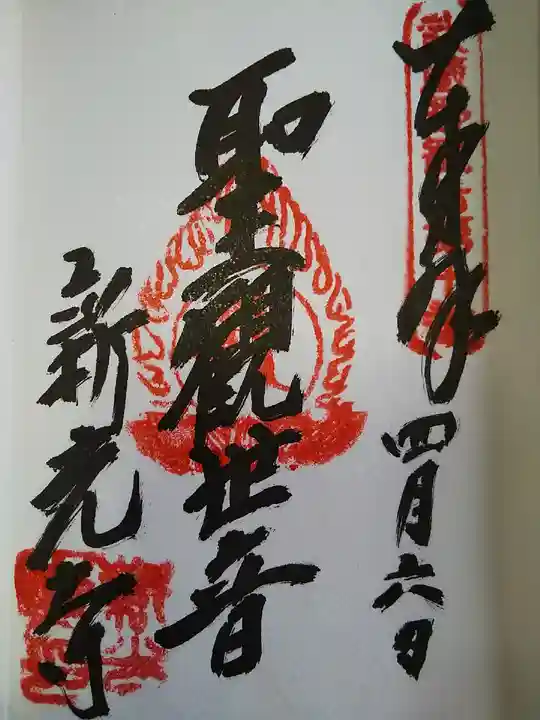 奉拝
四月六日
聖観世音
新光寺